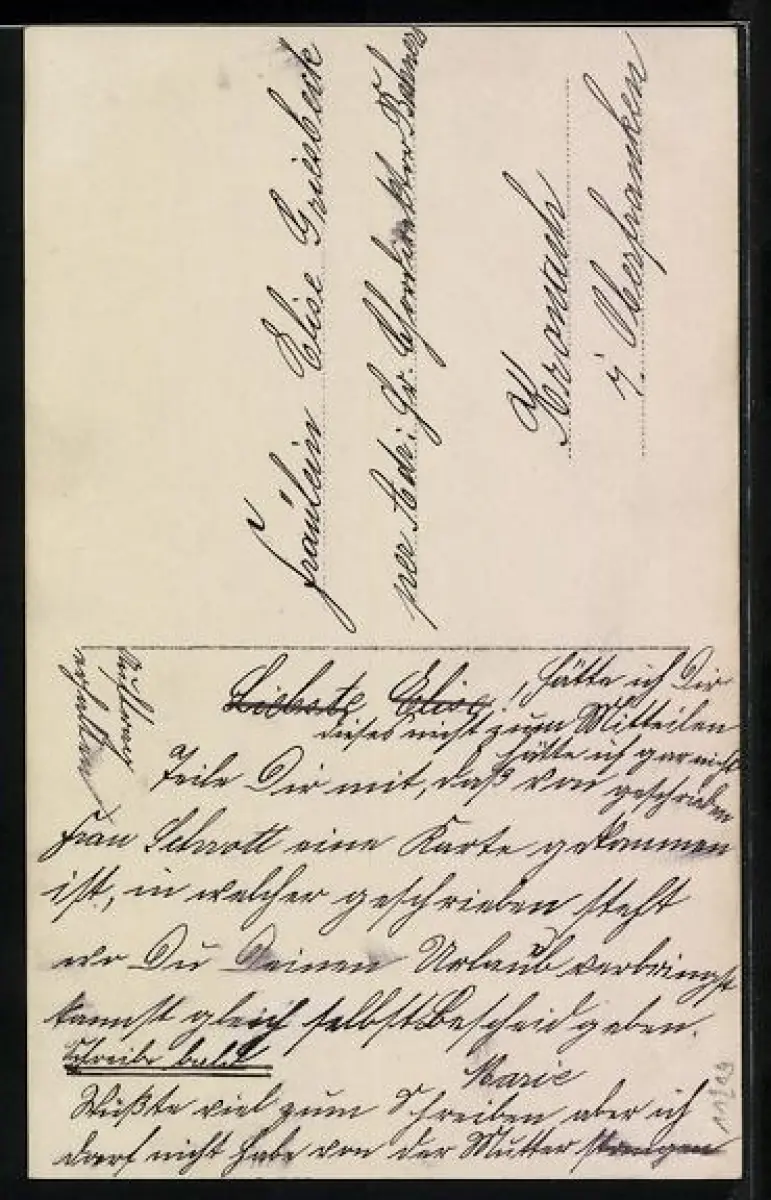 Fräulein Elise Griesbeck
per Adr: Hr.
Kronach
i/ Oberfranken
Liebste Elise!, hätte ich Dir
dieses nicht zum Mitteilen
hätte ich gar nicht
geschrieben
Teile Dir mit, daß von
Frau Schrott eine Karte gekommen
ist, in welcher geschrieben steht
wo Du Deinen Urlaub verbringst
kannst gleich selbst Bescheid geben.
Schreibe bald
Marie
Wüßte viel zum Schreiben aber ich
darf nicht habe von der Mutter strengen
erhalten